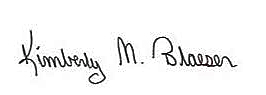 Kimberly M. Blaeser